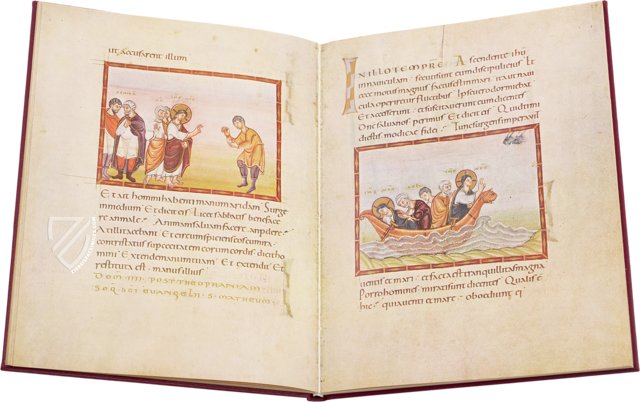 ut accusarent illum
Et ait homini habenti manum aridam Surge
in medium Et dicit eis Licet sabbatis benefacere
an male Animam salvam facere an perdere
At illi tacebant Et circumspiciens eos cum ira
contristatus super cecitatem cordis eorum dicit ho
mini Extende manum tuam Et extendit Et
restituta est manus illius
DOM IIII POST THEOPHANIAM
SCD MATHEUM
IN ILLO TEMPRE Ascendente ihu
in naviculam secuti sunt eum discipuli eius Et
ecce motus magnus factus est in mari ita ut navi
cula operiretur fluctibus Ipse vero dormiebat
Et accesserunt et suscitaverunt eum dicentes
Dne salva nos perimus Et dicit eis Quid timidi
estis modicae fidei Tunc surgens imperavit
ventis et mari et facta est tranquillitas magna
Porro homines mirati sunt dicentes Qualis est
hic quia venti et mare oboediunt ei